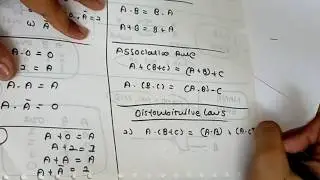 A = 2
w) A
A.0 = 0
= A
A.A = A
A.A̅ = 0
A+0 = A
A+2 = 2
A+A = A
A+A̅ = 2
A.B = B.A
A+B = B+A
Associative Rule
A+(B+C) = (A+B)+C
A.(B.C) = (A.B).C
Distributive Laws
2) A.(B+C) = (A.B)+(A.C